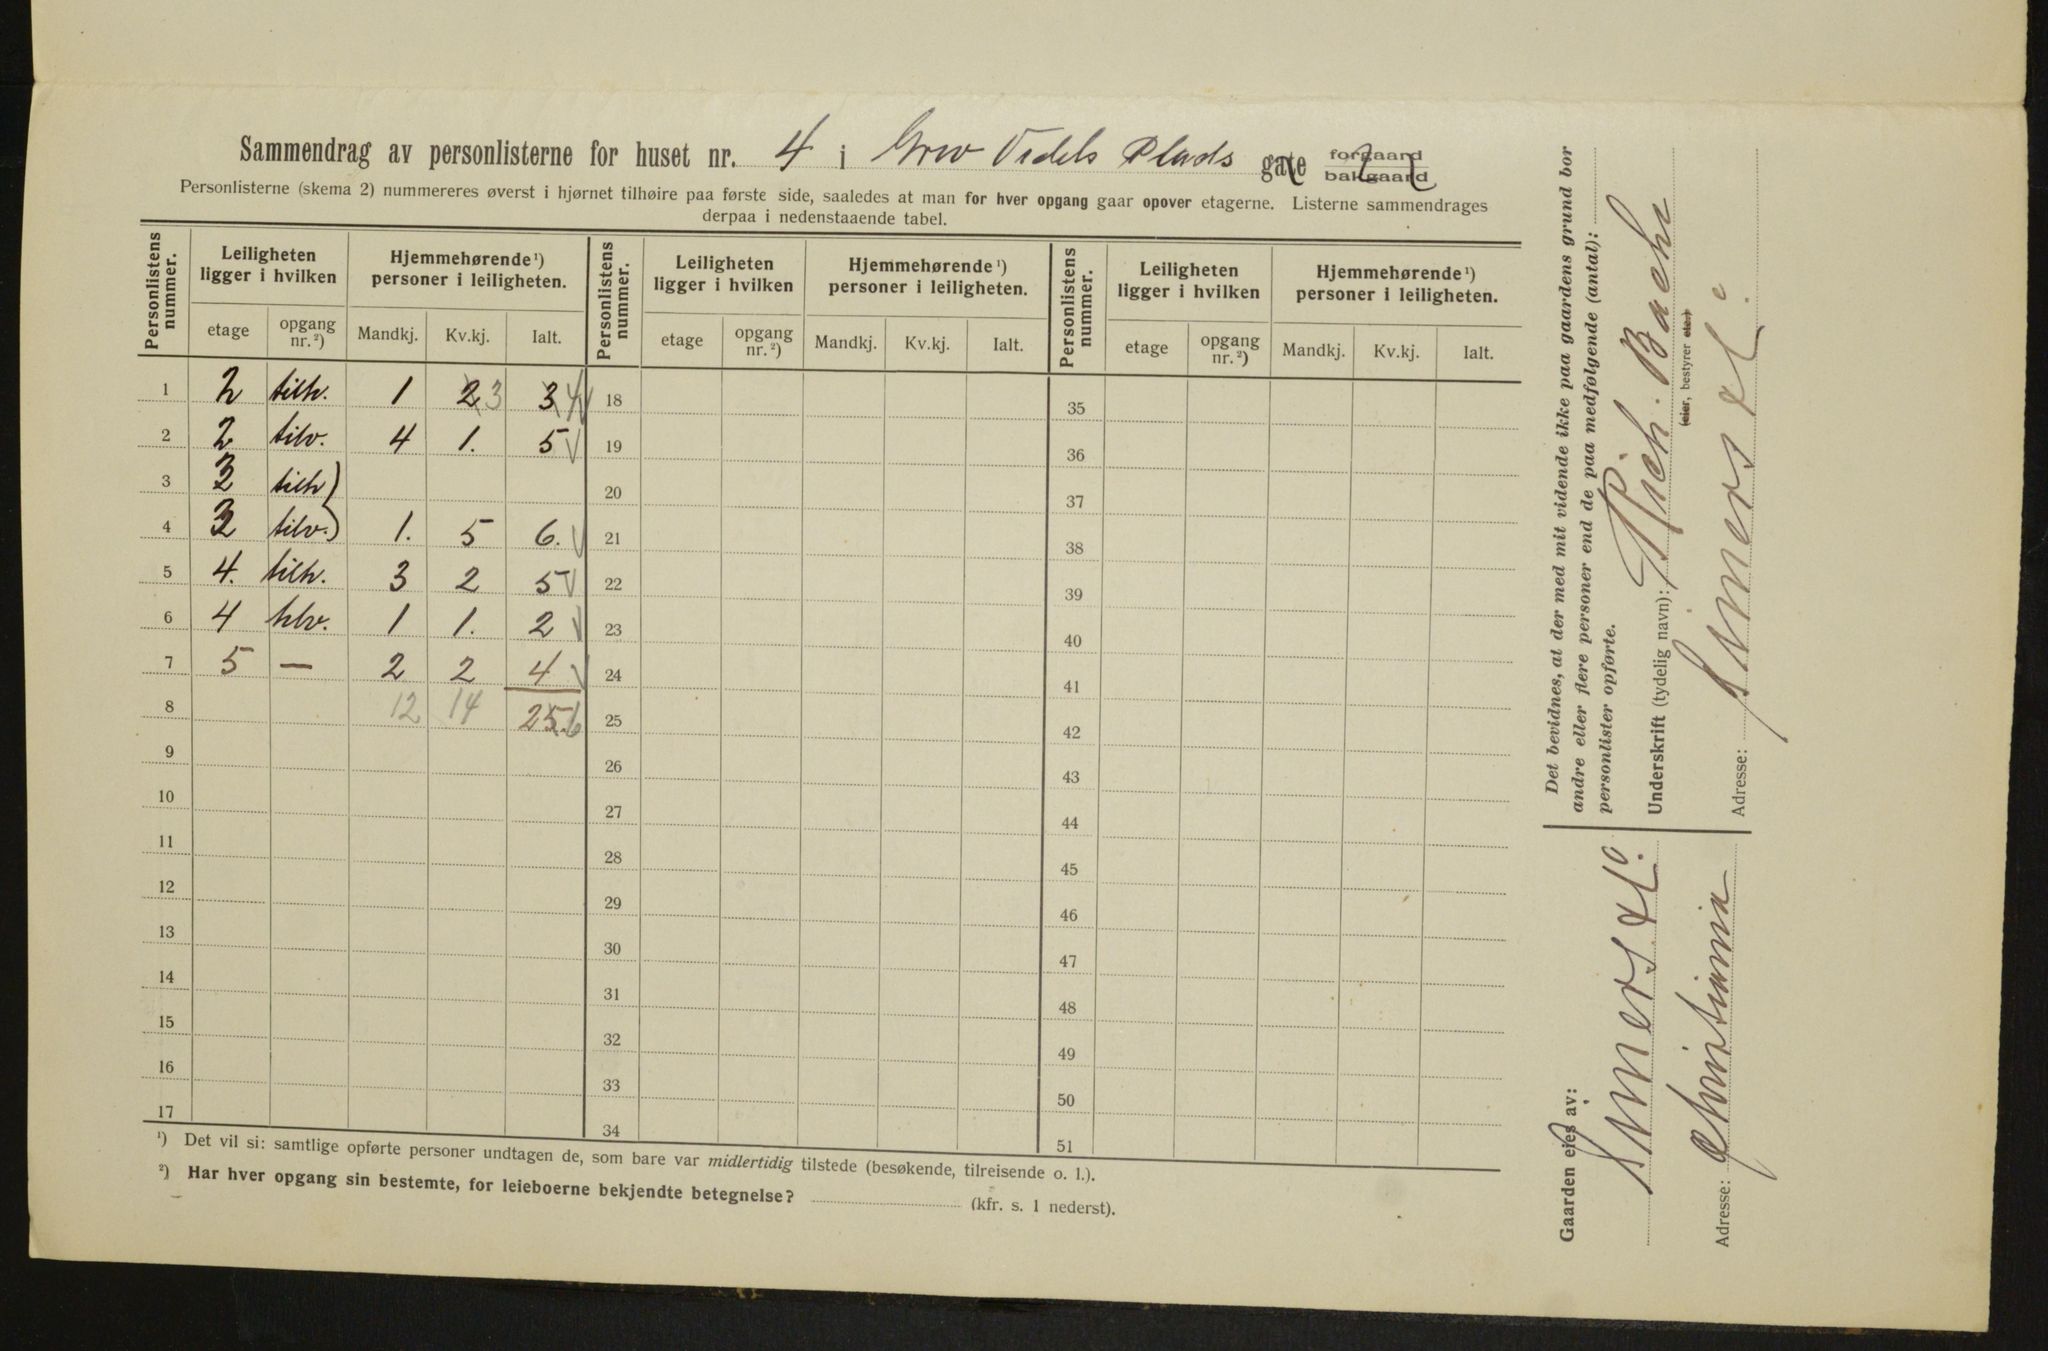 Sammendrag av personlisterne for huset nr. 4 i Grev Vedels Plads gate forgaard bakgaard
Personlisterne (skema 2) nummereres øverst i hjørnet tilhøire paa første side, saaledes at man for hver opgang gaar opover etagerne. Listerne sammendrages
derpaa i nedenstaaende tabel.
Personlistens nummer. Leiligheten ligger i hvilken Hjemmehørende ¹) personer i leiligheten. Personlistens nummer. Leiligheten ligger i hvilken Hjemmehørende ¹) personer i leiligheten. Personlistens nummer. Leiligheten ligger i hvilken Hjemmehørende ¹) personer i leiligheten.
etage opgang nr. ²) Mandkj. Kv.kj. Ialt. etage opgang nr. ²) Mandkj. Kv.kj. Ialt. etage opgang nr. ²) Mandkj. Kv.kj. Ialt.
1 2 tilh. 1 2 3 3 4 18 35
2 2 tilv. 4 1. 5 19 36
3 3 tilh) 20 37
4 3 tilv.) 1. 5 6. 21 38
5 4. tilh. 3 2 5 22 39
6 4 tilv. 1 1. 2 23 40
7 5 — 2 2 4 24 41
8 12 14 25. 6 25 42
9 26 43
10 27 44
11 28 45
12 29 46
13 30 47
14 31 48
15 32 49
16 33 50
17 34 51
¹) Det vil si: samtlige opførte personer undtagen de, som bare var midlertidig tilstede (besøkende, tilreisende o. l.).
²) Har hver opgang sin bestemte, for leieboerne bekjendte betegnelse? (kfr. s. 1 nederst).
Det bevidnes, at der med mit vidende ikke paa gaardens grund bor
andre eller flere personer end de paa medfølgende (antal):
personlister opførte.
Underskrift (tydelig navn): Rich. Bache
(eier, bestyrer eier.)
Adresse:
Gaarden eies av:
Adresse: Christiania